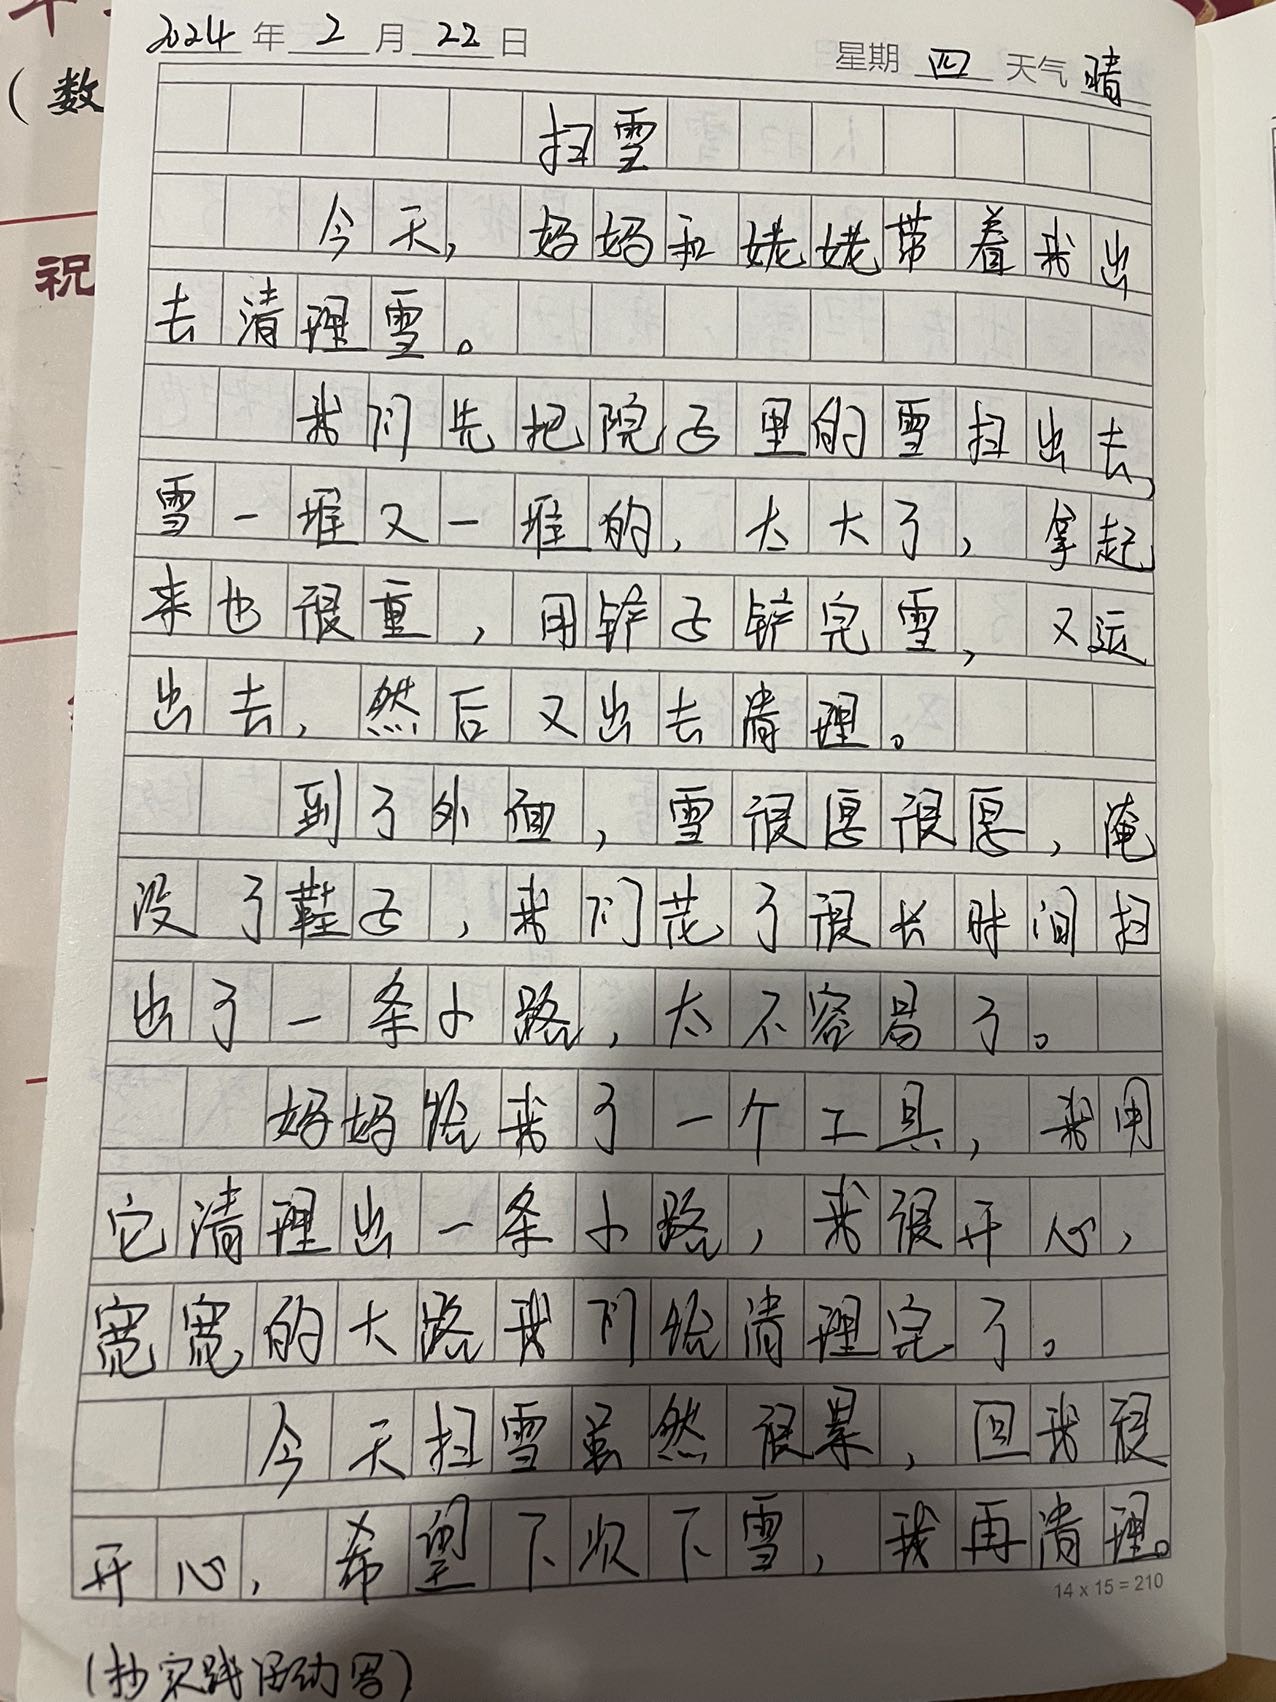 (数
祝
2024年2月22日 星期四 天气晴
扫雪
今天,妈妈和姥姥带着我出
去清理雪。
我们先把院子里的雪扫出去,
雪一堆又一堆的,太大了,拿起
来也很重,用铲子铲完雪,又运
出去,然后又出去清理。
到了外面,雪很厚很厚,淹
没了鞋子,我们花了很长时间扫
出了一条小路,太不容易了。
妈妈给我了一个工具,我用
它清理出一条小路,我很开心,
宽宽的大路我们给清理完了。
今天扫雪虽然很累,回我很
开心,希望下次下雪,我再清理。
14 x 15 = 210
(抄实践活动男)